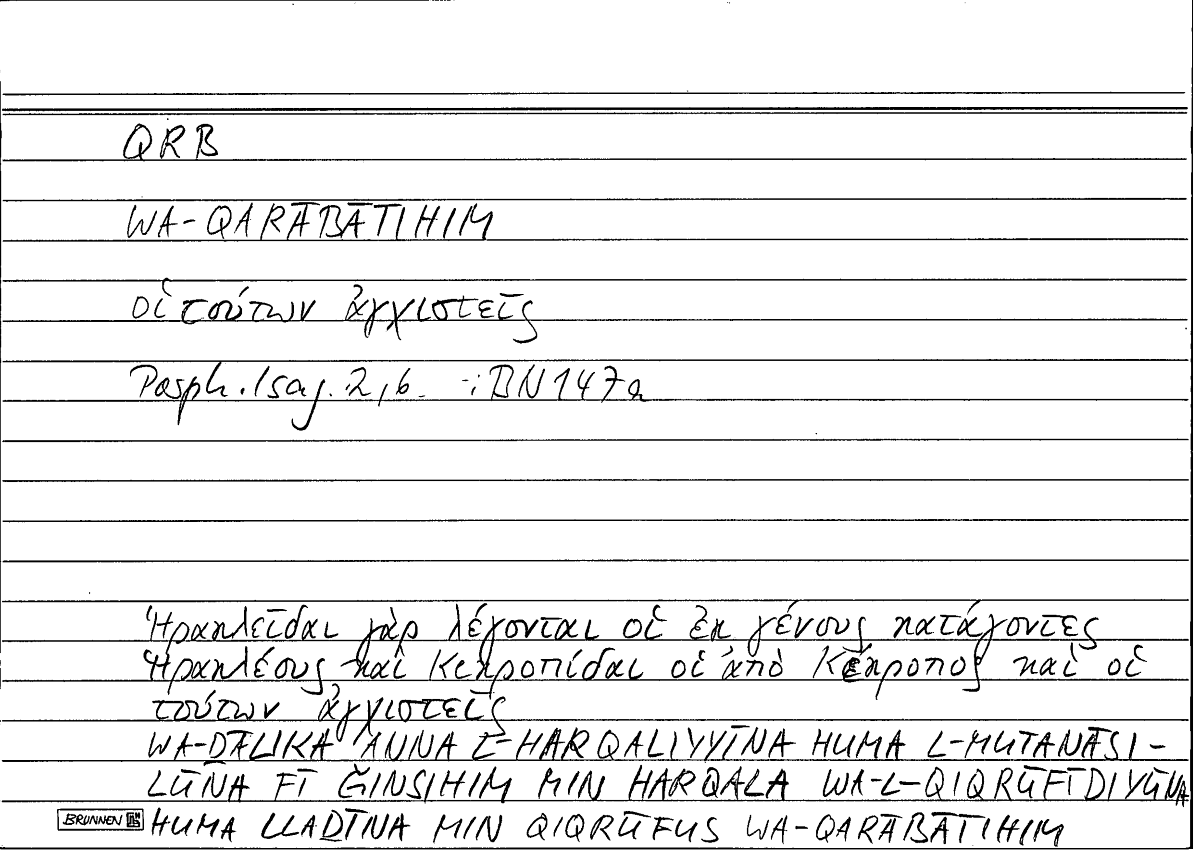 QRB
WA-QARĀBĀTIHIM
οἱ τούτων ἀγχιστεῖς
Porph. Isag. 2,6. -: BN 147a
Ἡρακλεῖδαι γὰρ λέγονται οἱ ἐκ γένους κατάγοντες
Ἡρακλέους καὶ Κεκροπίδαι οἱ ἀπὸ Κέκροπος καὶ οἱ
τούτων ἀγχιστεῖς
WA-ḎĀLIKA ʾANNA L-HARQALIYYĪNA HUMA L-MUTANĀSI-
LŪNA FĪ ǦINSIHIM MIN HARQALA WA-L-QIQRŪFĪDIYŪNA
HUMA LLAḎĪNA MIN QIQRŪFUS WA-QARĀBĀTIHIM
BRUNNEN